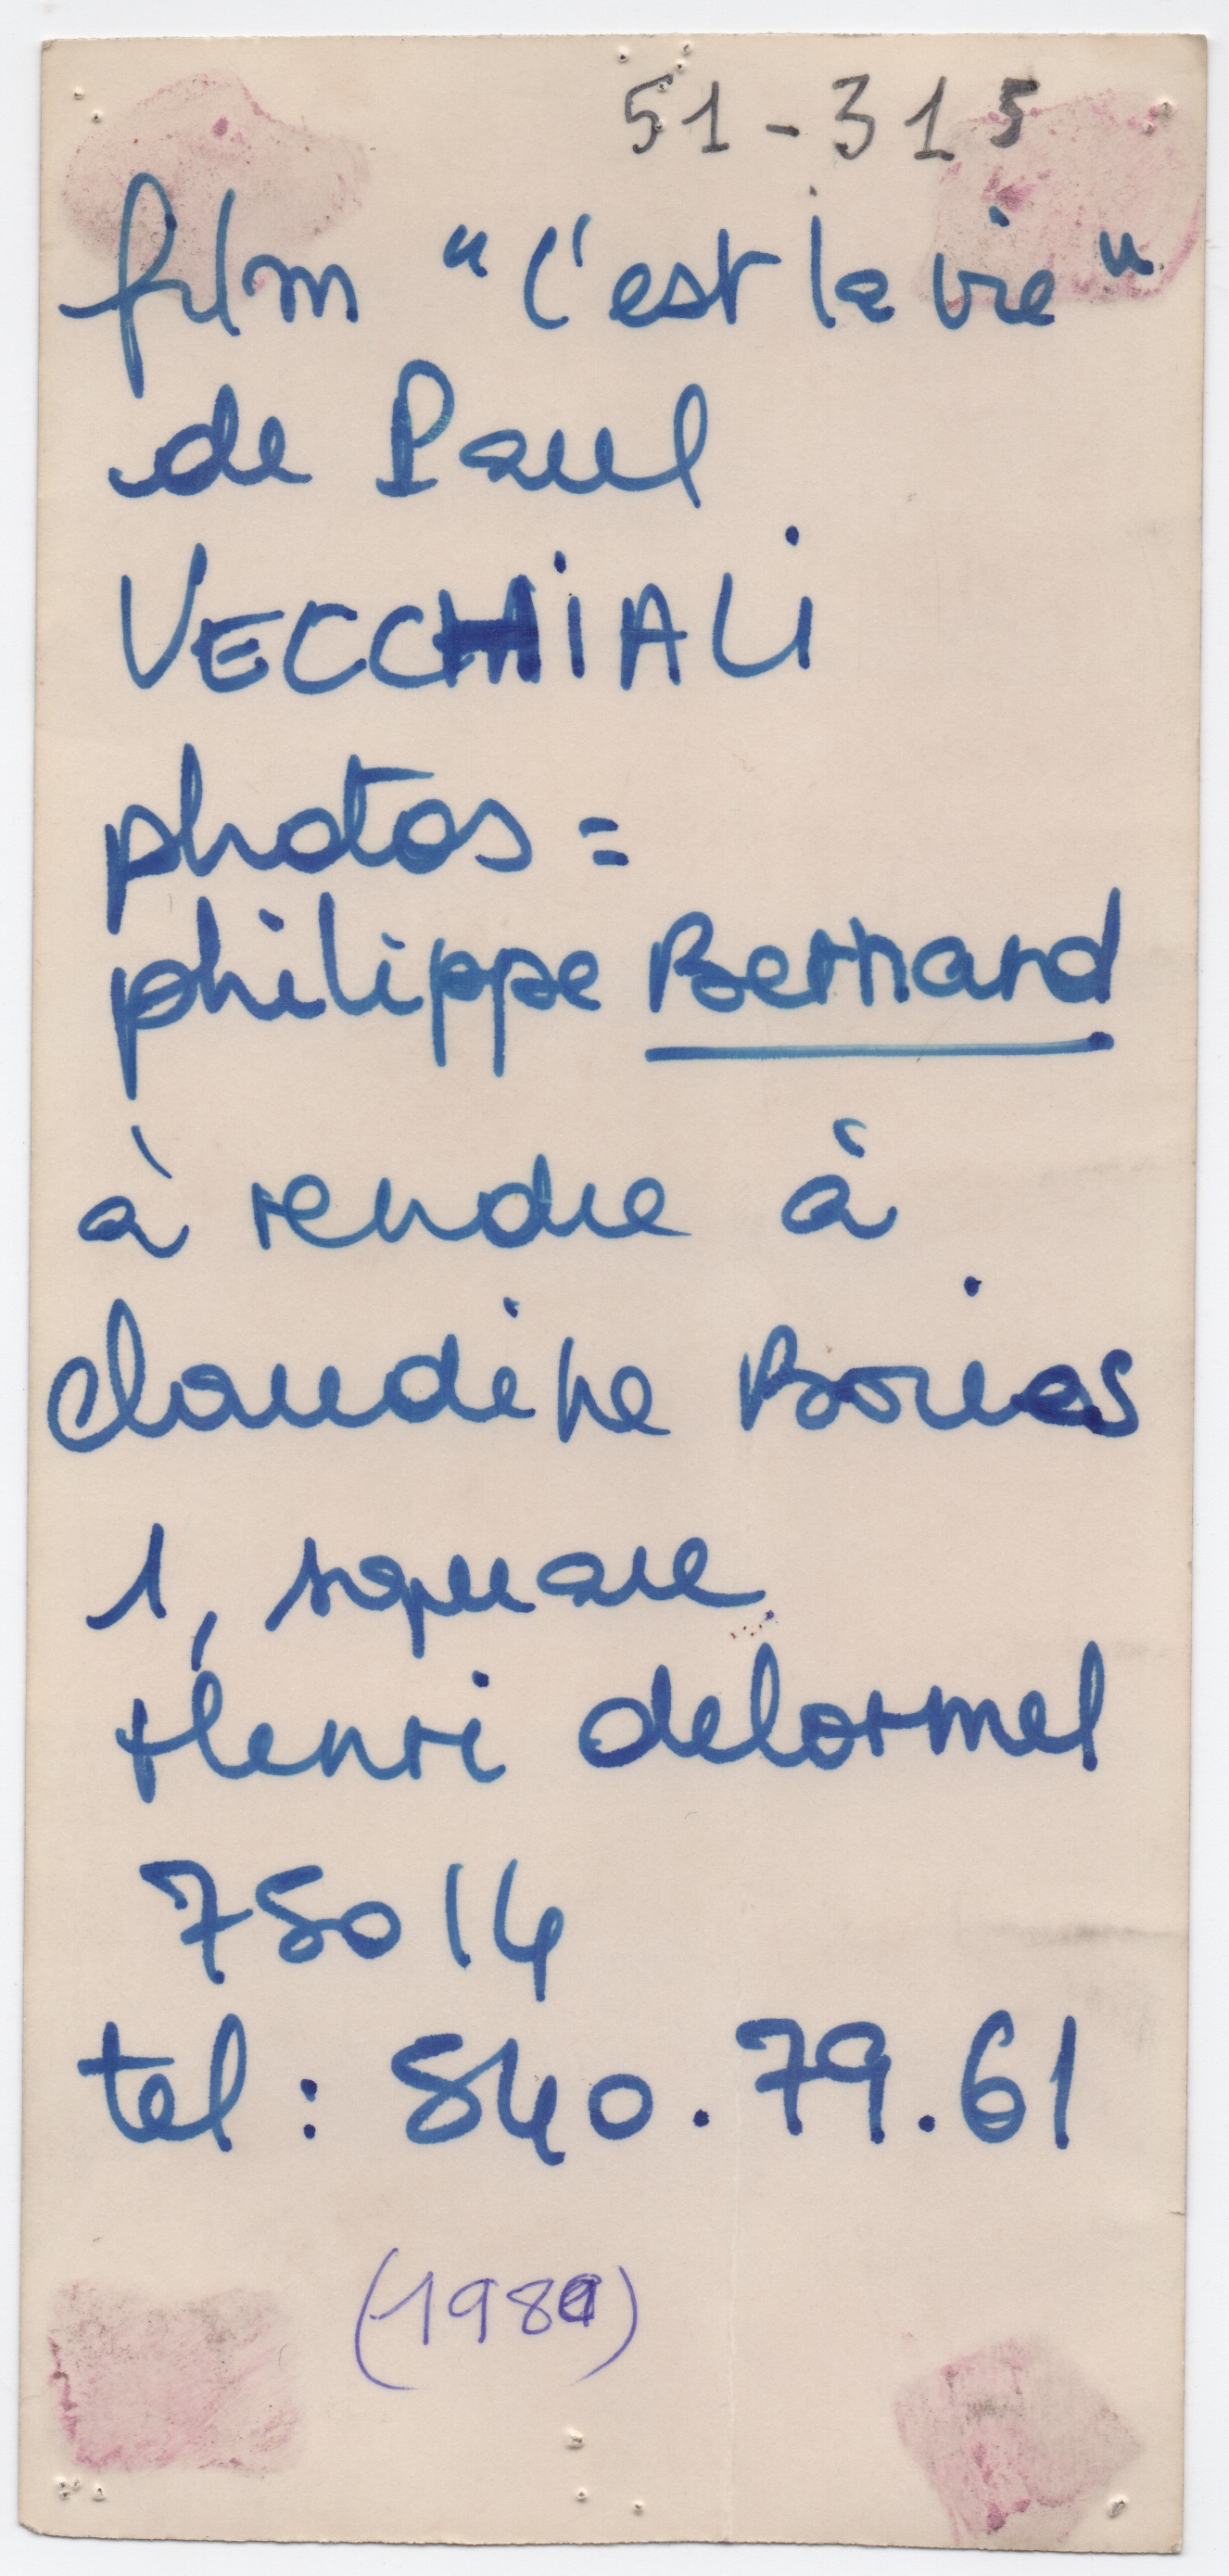 51-315
film "c'est la vie"
de Paul
VECCHiALi
photos =
philippe Bernard
à rendre à
Claudine Bories
1, square
Henri delormel
75014
tel : 840.79.61
(1980)